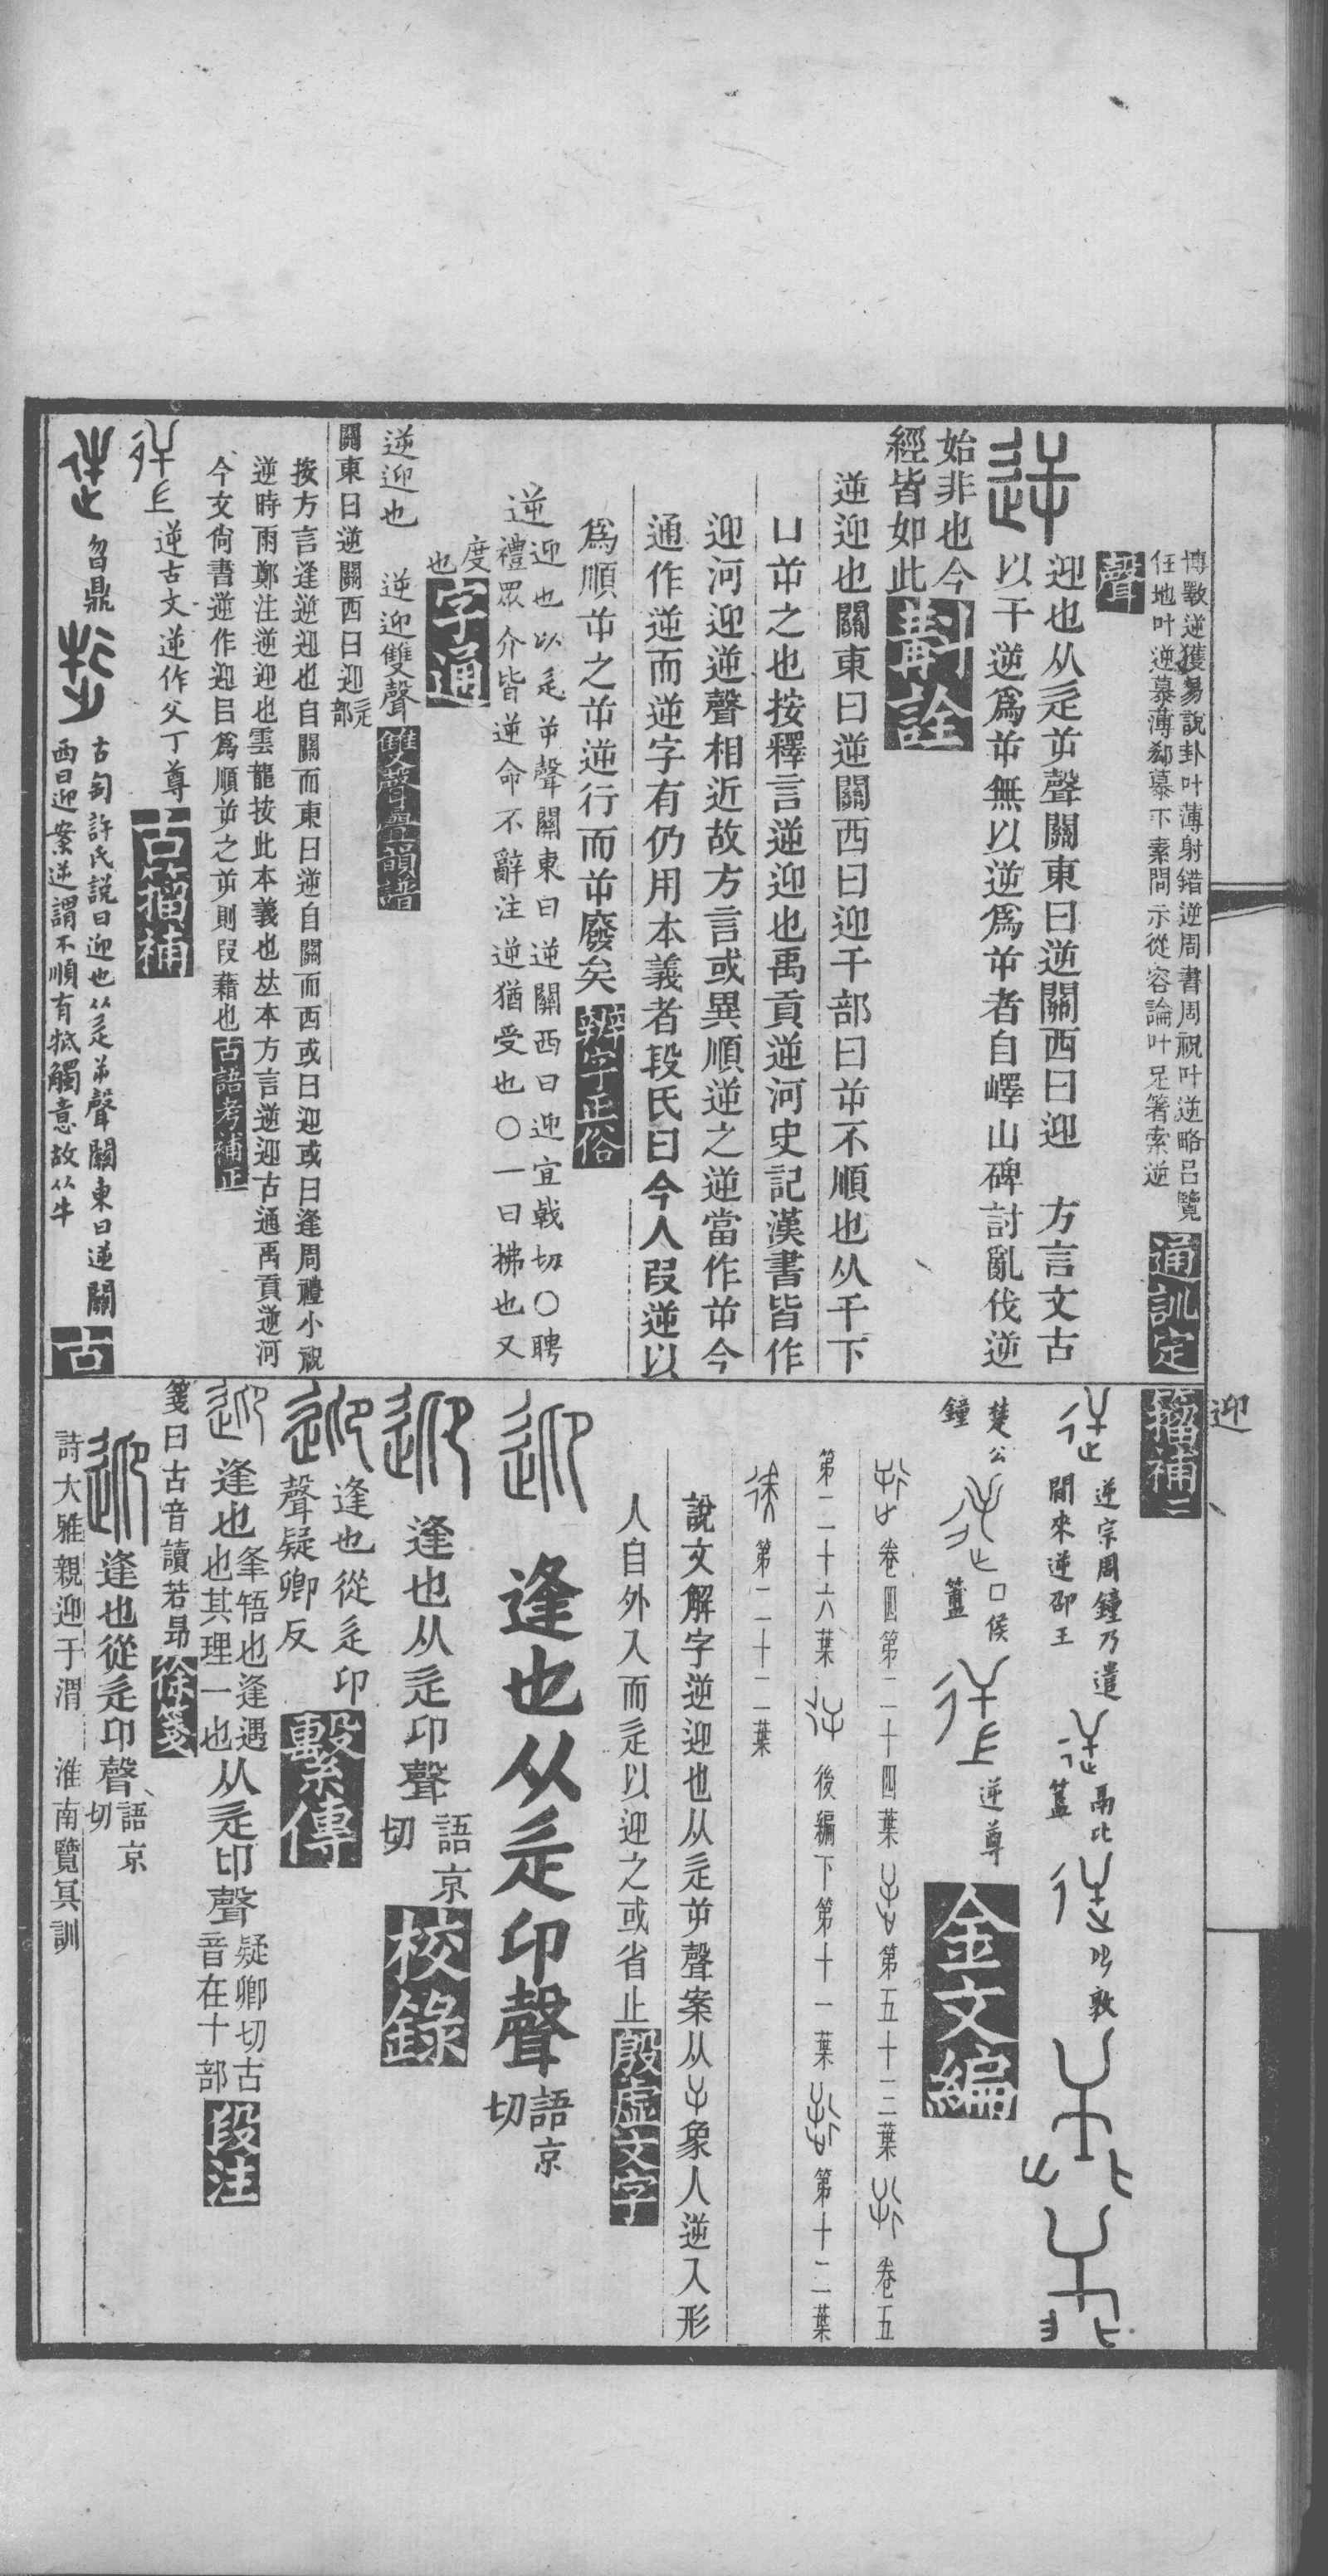 博斁逆獲易說卦叶薄射錯逆周書周祝叶逆略呂覽
任地叶逆慕薄郄慕下素問示從容論叶足箸索逆
通訓定
聲
迎也从辵屰聲關東曰逆關西曰迎　方言文古
以干逆爲屰無以逆爲屰者自嶧山碑討亂伐逆
始非也今
經皆如此
斠詮
逆迎也關東曰逆關西曰迎干部曰屰不順也从干下
凵屰之也按釋言逆迎也禹貢逆河史記漢書皆作
迎河迎逆聲相近故方言或異順逆之逆當作屰今
通作逆而逆字有仍用本義者段氏曰今人叚逆以
爲順屰之屰逆行而屰廢矣
辨字正俗
逆
迎也以辵屰聲關東曰逆關西曰迎宜戟切〇聘
禮眾介皆逆命不辭注逆猶受也〇一曰拂也又
度
也
字通
逆迎也　逆迎雙聲
雙聲疊韻譜
關東曰逆關西曰迎
辵部
按方言逢逆迎也自關而東曰逆自關而西或曰迎或曰逢周禮小祝
逆時雨鄭注逆迎也雲龍按此本義也夶本方言逆迎古通禹貢逆河
今文尙書逆作迎㠯爲順屰之屰則叚藉也
古語考補正
逆古文逆作父丁尊
古籀補
曶鼎
古匋許氏說曰迎也从辵屰聲關東曰逆關
西曰迎案逆謂不順有牴觸意故从牛
古
籀補二
迎
逆宗周鐘乃遣
閒來逆邵王
鬲比
簋
敦
楚公
鐘
口侯
簠
逆尊
金文編
卷四第二十四葉
第五十三葉
卷五
第二十六葉
後編下第十一葉
第十二葉
第二十二葉
說文解字逆迎也从辵屰聲案从
象人逆入形
人自外入而辵以迎之或省止
殷虛文字
逢也从辵卬聲
語京
切
逢也从辵卬聲
語京
切
校錄
逢也從辵卬
聲疑卿反
繫傳
逢也
夆啎也逢遇
也其理一也
从辵卬聲
疑卿切古
音在十部
段注
箋曰古音讀若昻
徐箋
逢也從辵卬聲
語京
切
詩大雅親迎于渭　淮南覽冥訓